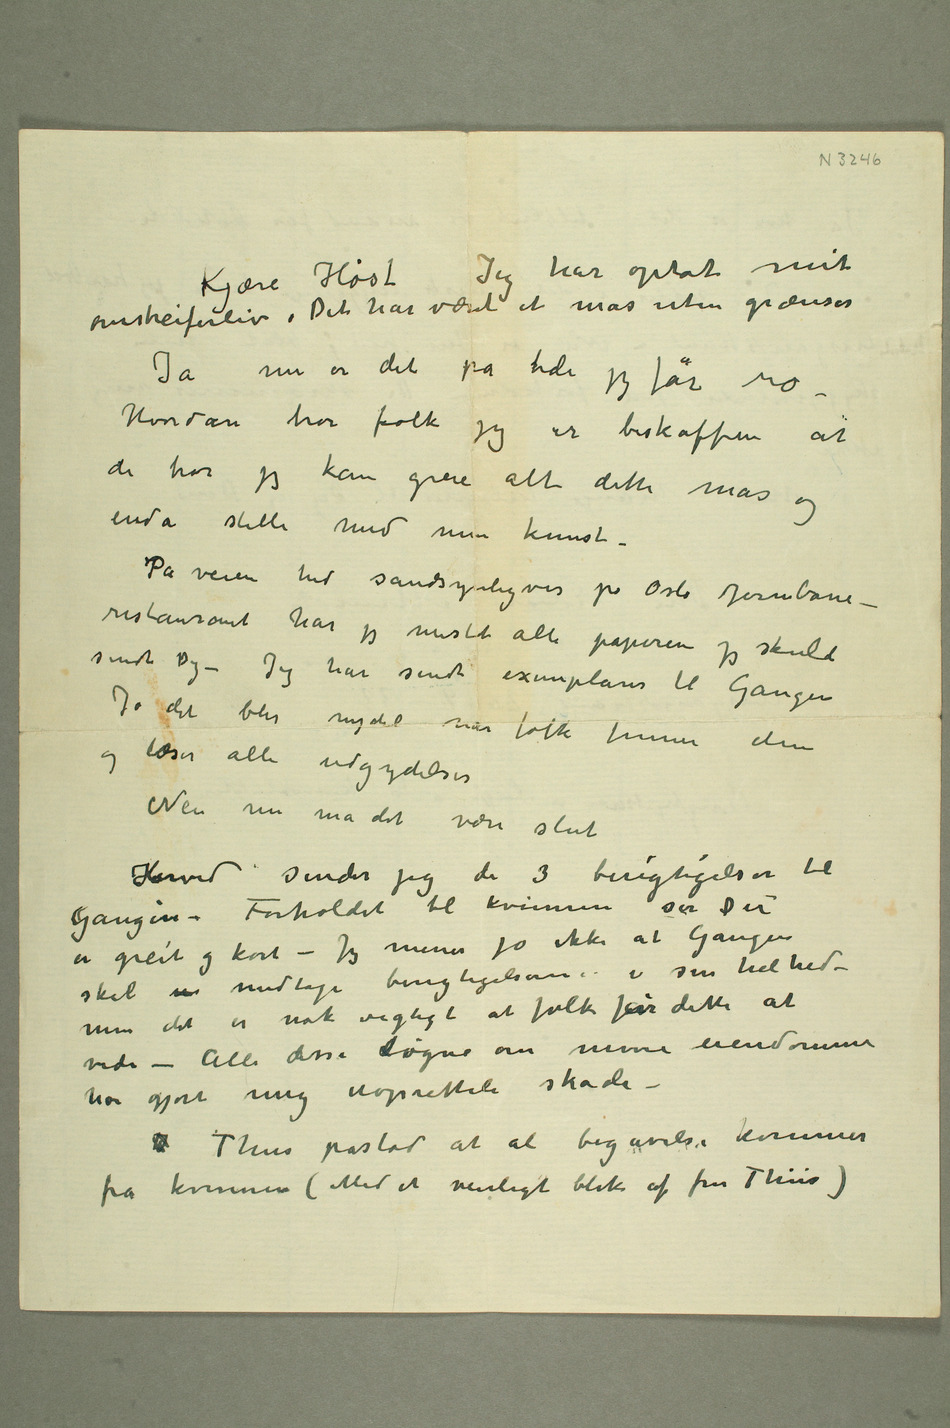 N 3246
Kjære Höst Jeg har optat mit
omstreiferliv. Det har været et mas uten grænser
Ja nu er det på tide jg får ro –
Hvordan tror folk jeg er beskaffen at
de tror jg kan greie alt dette mas og
enda stelle med min kunst –
På veien hid sandsynligvis på Oslo Jernbane–
restaurant har jg mistet alle papirene jg skulde
sendt Dig – Jeg har sendt exemplarer til Gangen
Jo det blir nydel når folk finner dem
og læser alle udgydelser
Nei nu må det være slut
Herved sender jeg de 3 berigtigelser til
Gangen – Forholdet til kvinnen ser Du
er greit og kort – Jg mener jo ikke at Gangen
skal medtage berigtigelserne i sin helhed –
men det er nok vigtigt at folk får dette at
vide – Alle disse Løgne om mine eiendomme
har gjort mig uoprettele skade –
Thiis påstod at al begavelse kommer
fra kvinnen (Med et venligt blik af fru Thiis)